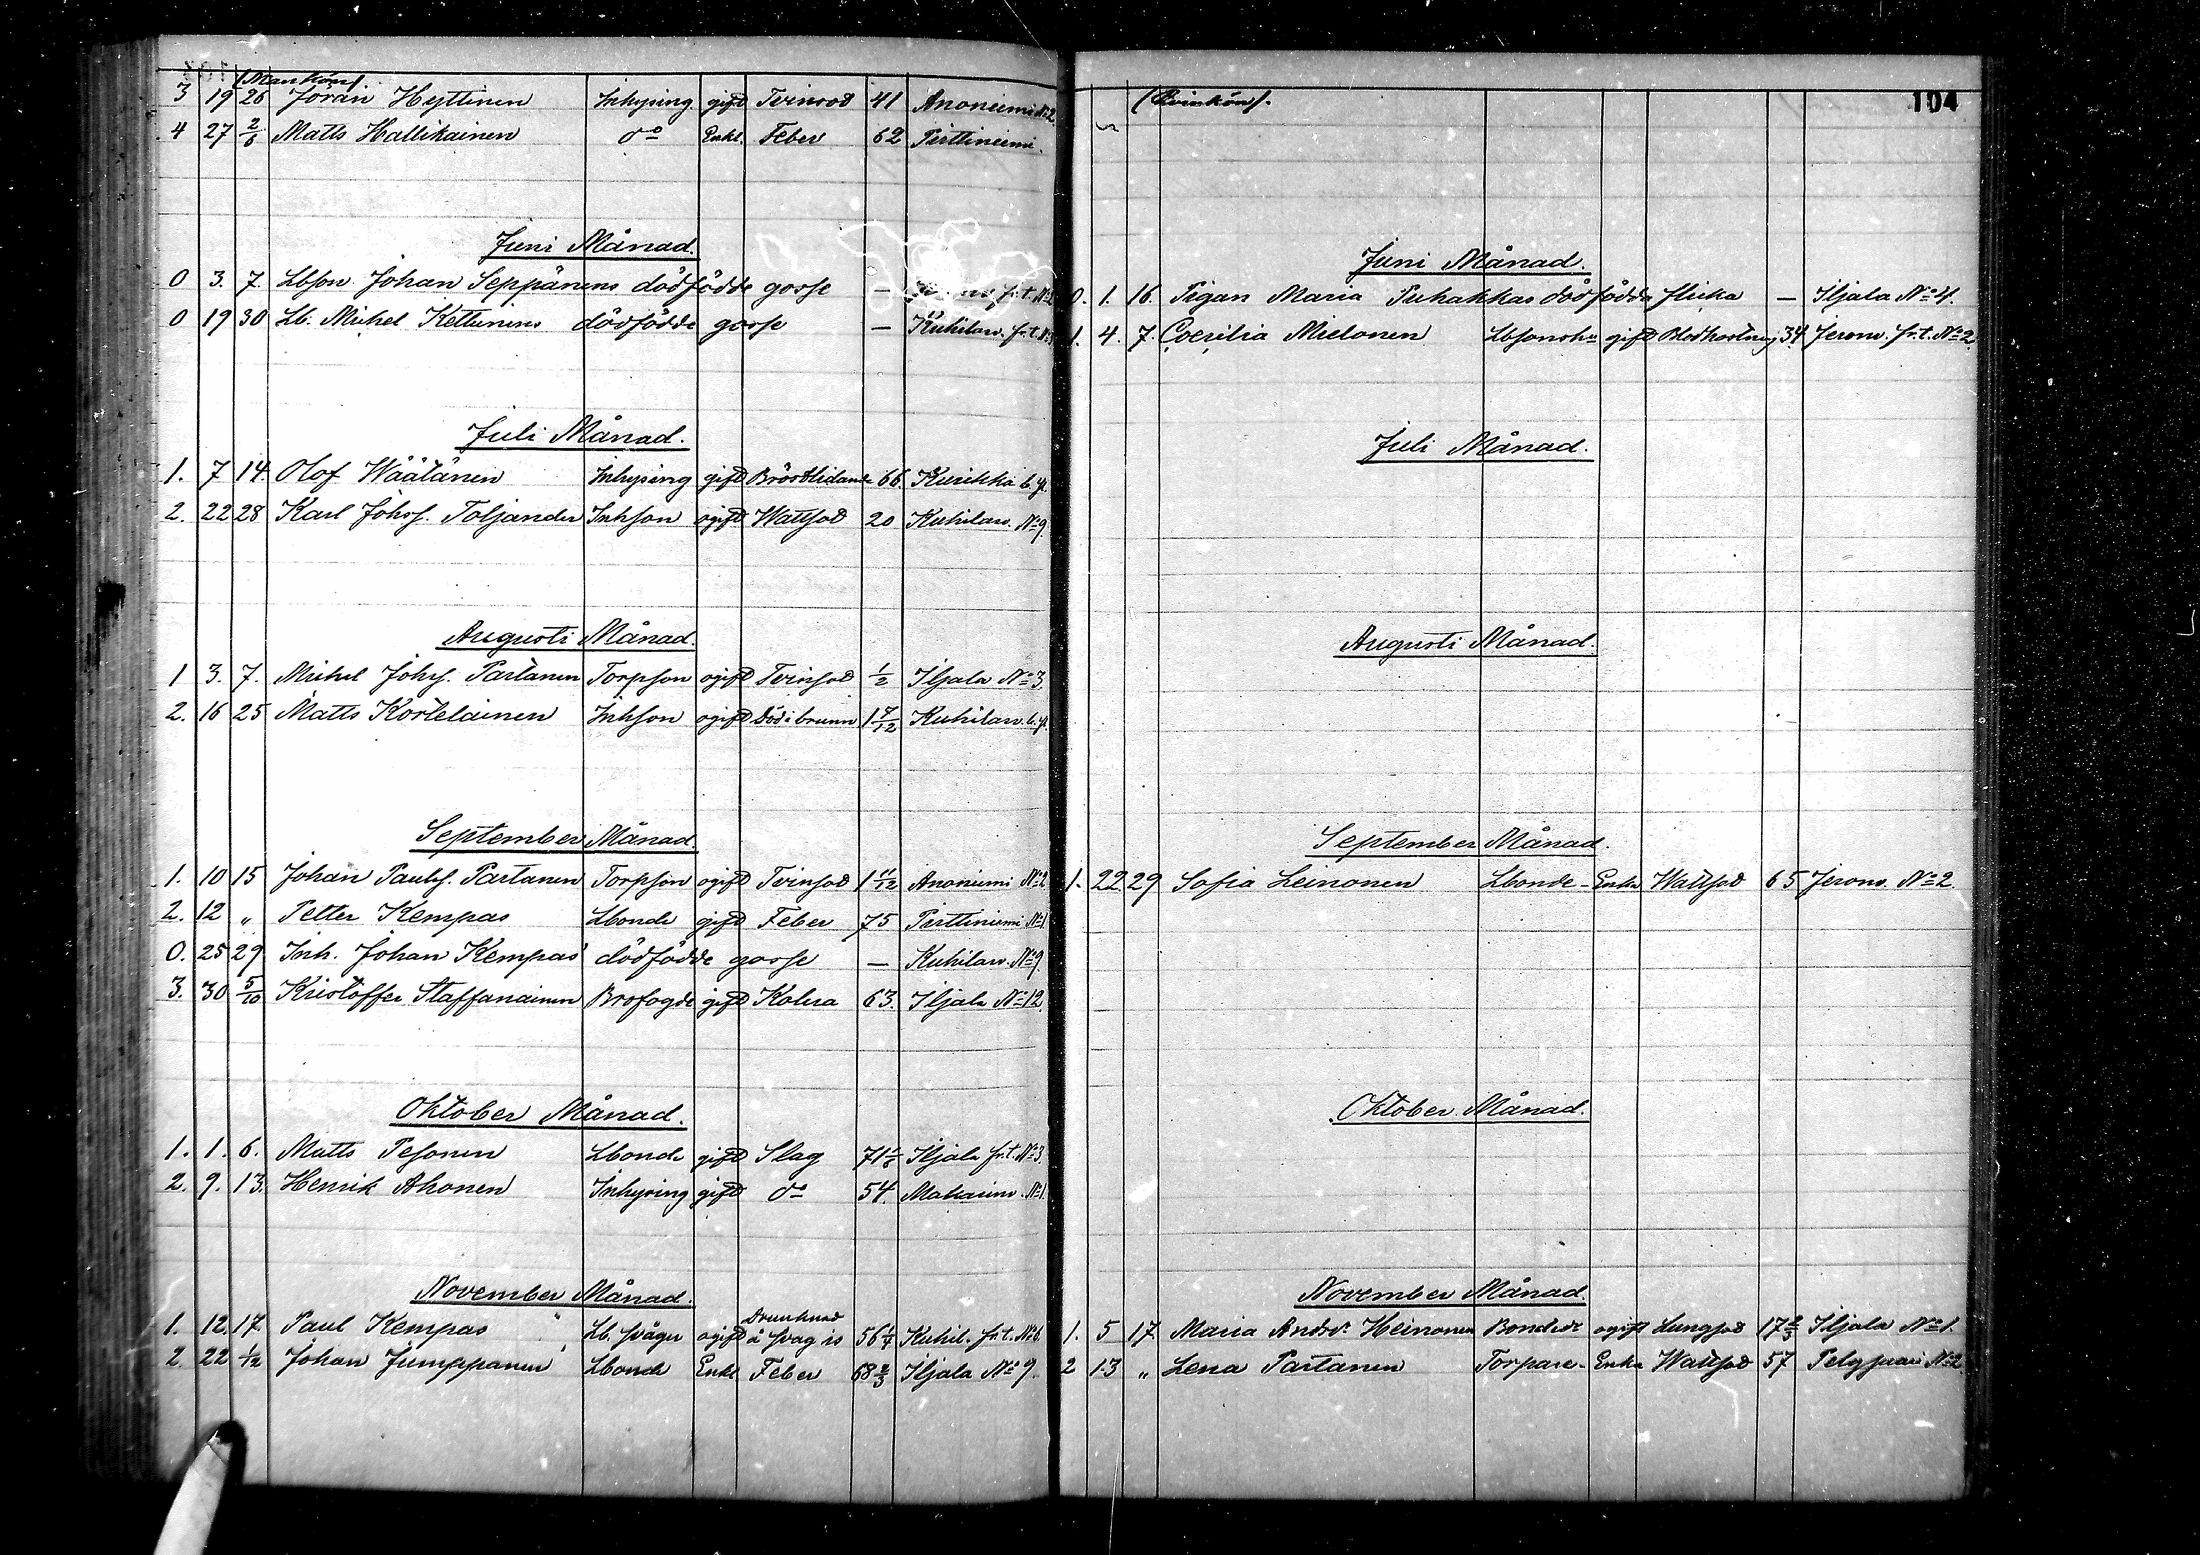 (Mankön)
3 19 26 Jöran Hyttinen Inhysing gift Tvinsot 41 Anoniemi No 2
4 27 2/6 Matts Hallikainen do Enkl. Feber 62 Pirttiniemi.
Juni Månad.
0 3. 7. Lbson Johan Seppänens dödfödde gosse — fr.t. No 2
0 19 30 Lb. Mickel Kettunens dödfödde gosse — Kuhilaw. fr.t. No 3
Juli Månad.
1. 7 14. Olof Wäätänen Inhysing gift Bröstlidande 66. Kurikka b. yt
2. 22 28 Karl Johss. Toljander Inhson ogift Wattsot 20 Kuhilaw. No 9.
Augusti Månad.
1 3. 7. Mickel Johs. Partanen Torpson ogift Tvinsot 1/2 Iljala No 3.
2. 16 25 Matts Kortelainen Inhson ogift Död i brunn 1 7/12 Kuhilaw. b. yt.
September Månad
1. 10 15 Johan Paulss. Partanen Torpson ogift Tvinsot 1 11/12 Anoniemi No 2
2. 12 „ Petter Kempas Lbonde gift Feber 75 Pirttiniemi No 1
0. 25 29 Inh. Johan Kempas' dödfödde gosse — Kuhilaw. No 9
3. 30 5/10 Kristoffer Staffanainen Brofogde gift Kolera 63. Iljala No 12.
Oktober Månad.
1. 1. 6. Matts Pesonen Lbonde gift Slag 71 Iljala fr.t. No 3.
2. 9. 13. Henrik Ahonen Inhysing gift do 54. No 1.
November Månad.
1. 12. 17. Paul Kempas Lb. svåger ogift Drunknad å svag is 56 1/4 Kuhil. fr.t. No 6
2. 22 1/12 Johan Jumppanen Lbonde Enkl. Feber 68 2/3 Iljala No 9.
104
(Qvinkön).
Juni Månad.
0. 1. 16. Pigan Maria Puhakkas dödfödda flicka — Iljala No 4.
1. 4. 7. Coecilia Mielonen Lbsonshu gift Blodhostning 34. Jeronv. fr.t. No 2.
Juli Månad.
Augusti Månad.
September Månad.
1. 22 29 Sofia Leinonen Lbonde- Enka Wattsot 65 Jeronv. No 2.
Oktober Månad.
November Månad.
1. 5 17. Maria Andrsdr Heinonen Bondedr ogift Lungsot 17 2/3 Iljala No 1.
2 13 „ Lena Partanen Torpare- Enka Wattsot 57 Pelgjärvi No 2.